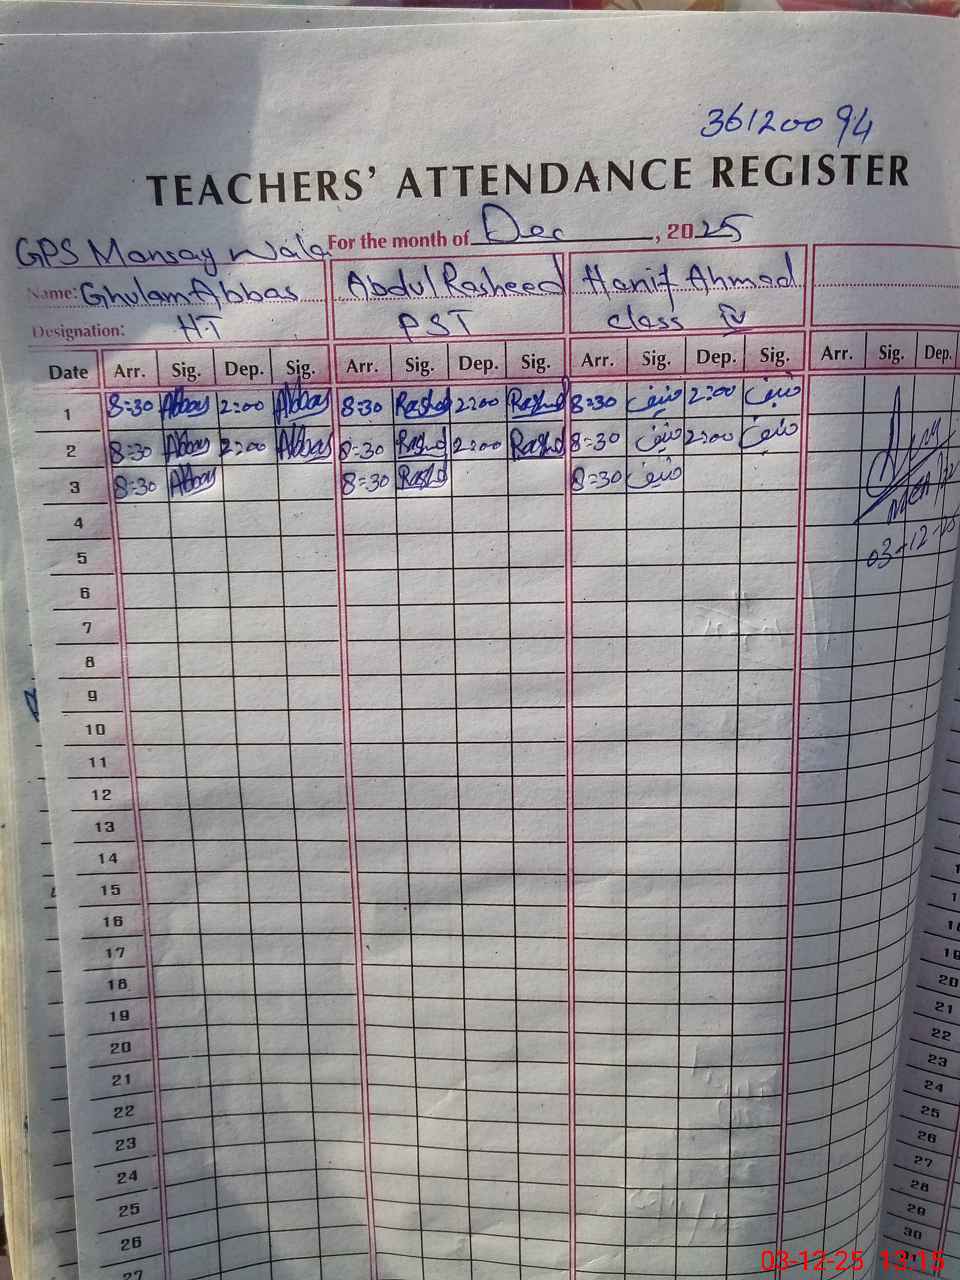 36120094
TEACHERS' ATTENDANCE REGISTER
GPS Mansay Wala For the month of Dec, 2025
Name: Ghulam Abbas Abdul Rasheed Hanif Ahmad
Designation: HT PST class IV
Date Arr. Sig. Dep. Sig. Arr. Sig. Dep. Sig. Arr. Sig. Dep. Sig. Arr. Sig. Dep.
1 8=30 Abbas 2:00 Abbas 8=30 Rashd 2:00 Rashd 8=30 حنیف 2:00 حنیف
2 8=30 Abbas 2:00 Abbas 8=30 Rashd 2:00 Rashd 8=30 حنیف 2:00 حنیف
3 8=30 Abbas 8=30 Rashd 8=30 حنیف
4
03-12-25
5
6
7
8
9
10
11
12
13
14
15
16
17
18
19
20
21
22
23
24
25
26
27
18
19
20
21
22
23
24
25
26
27
28
29
30
03-12-25 13:15